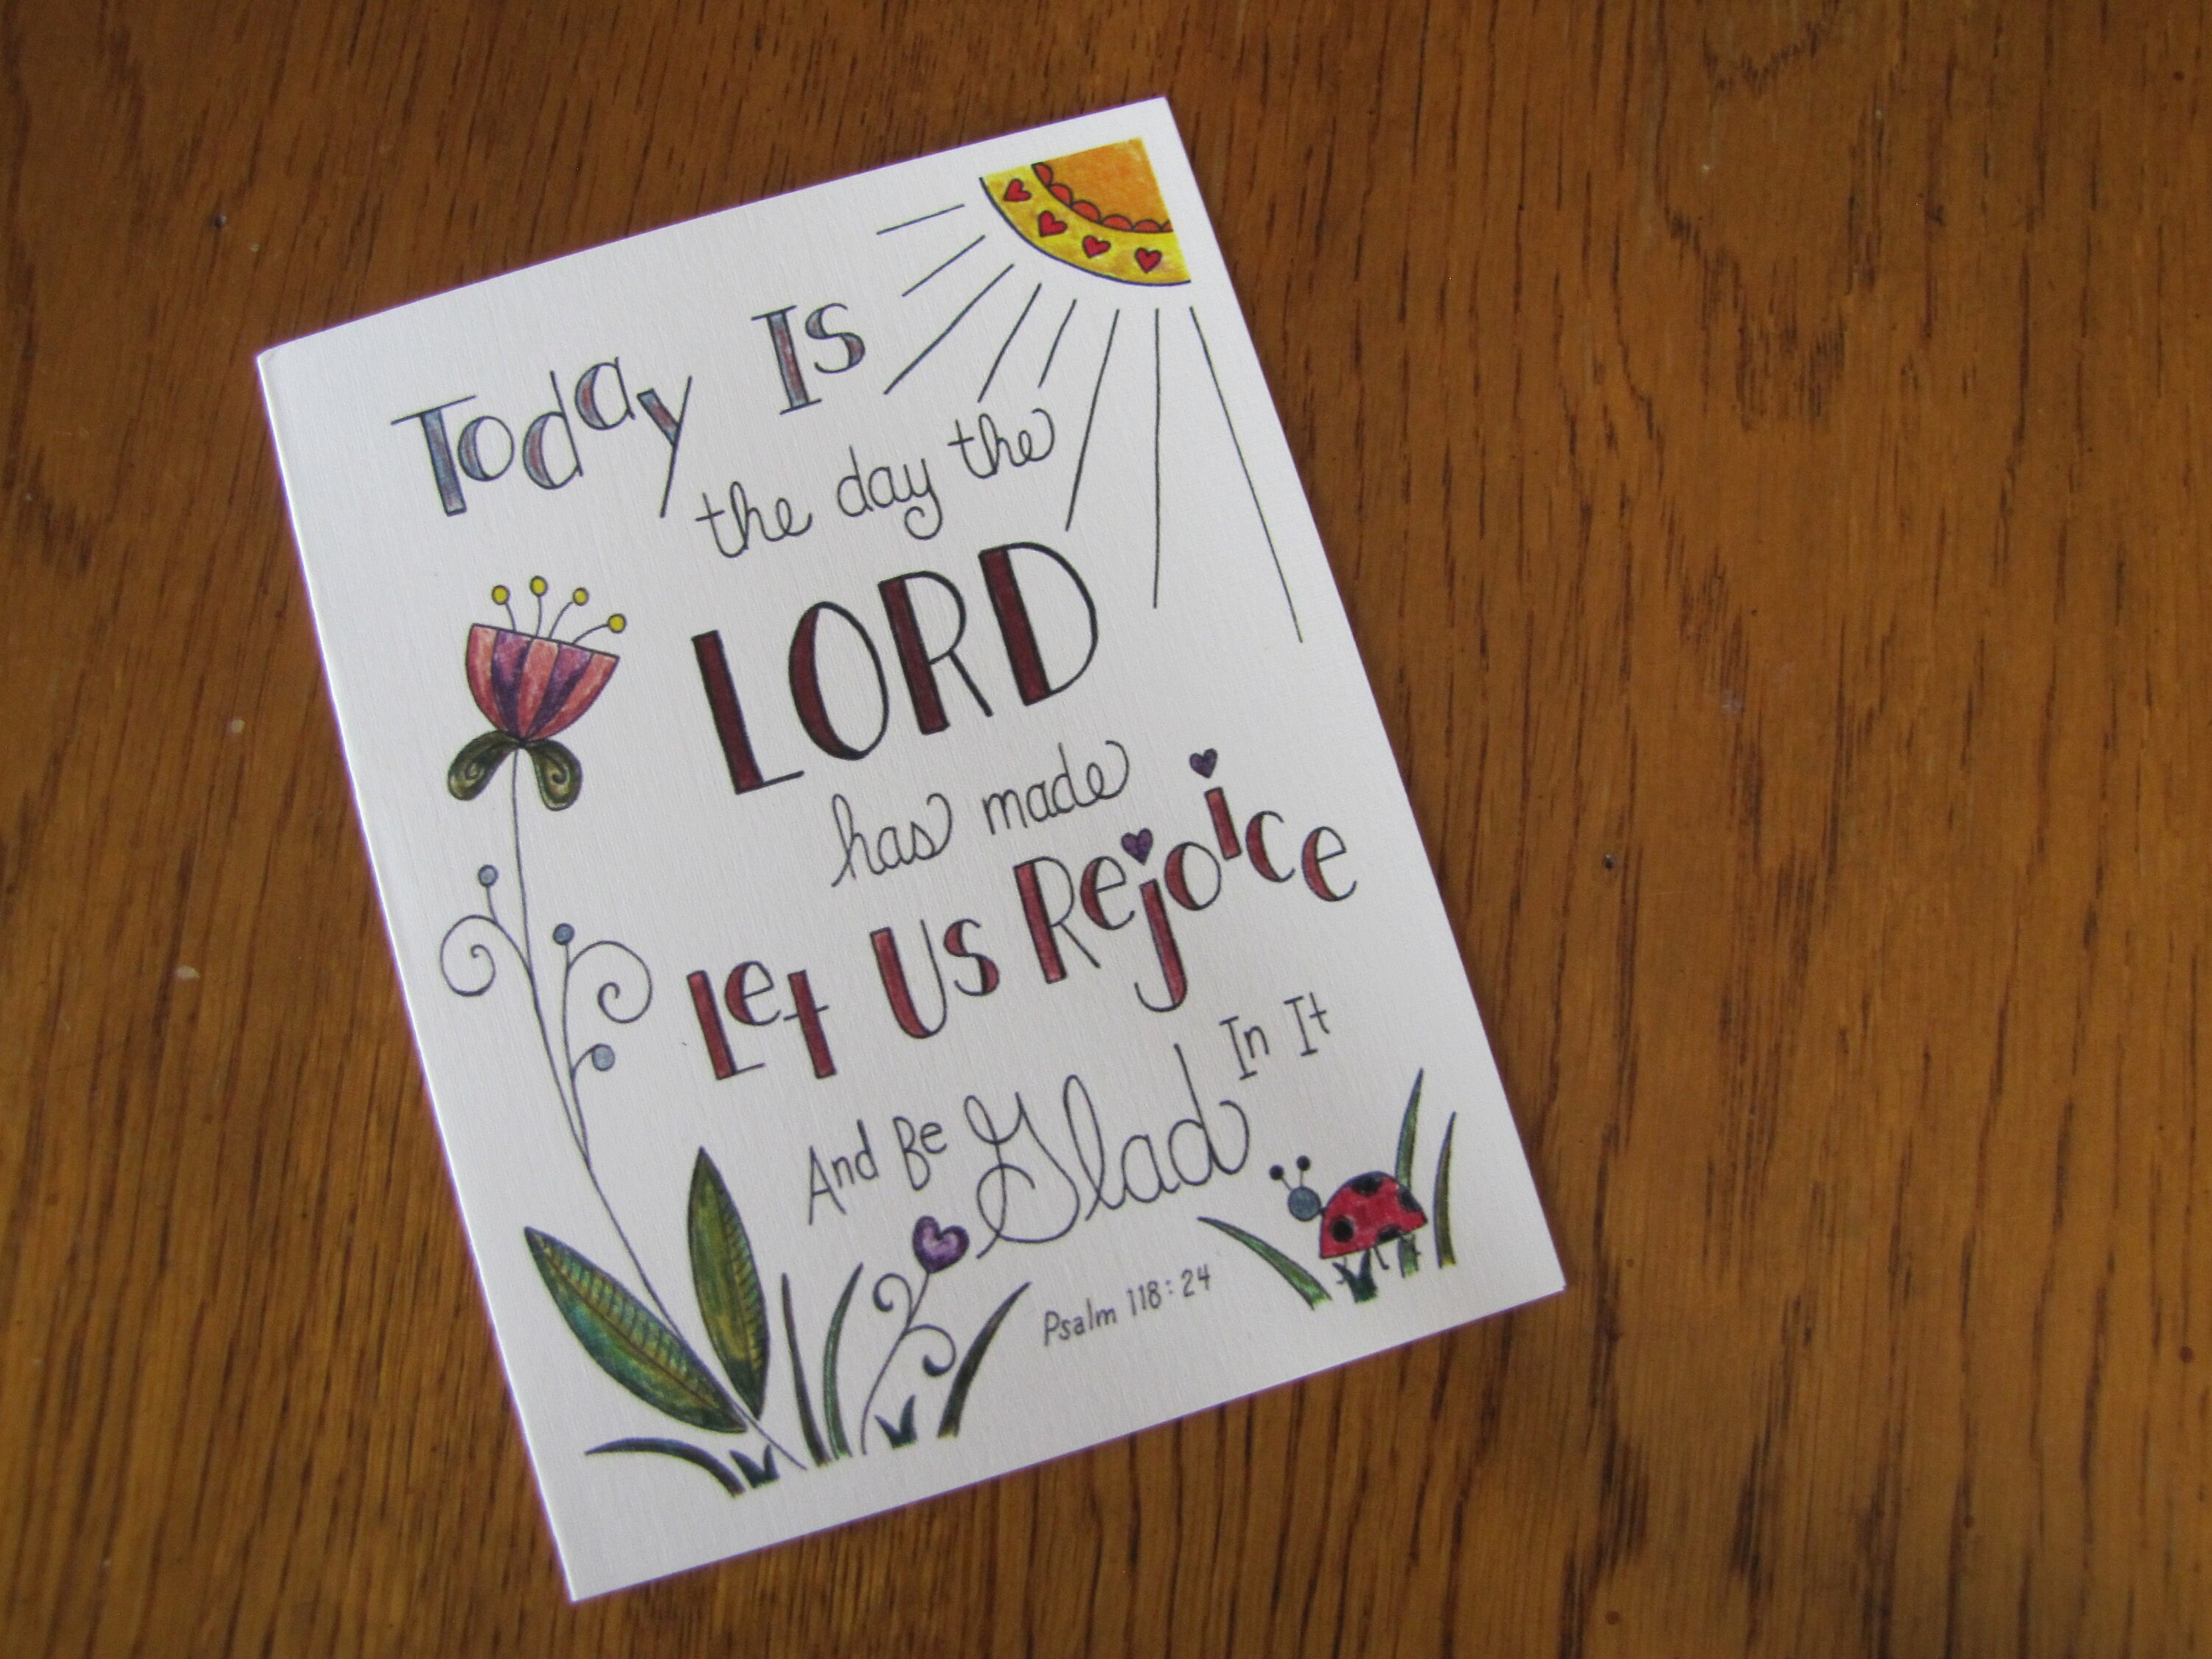 Today Is
the day the
LORD
has made
Let Us Rejoice
And Be Glad In It
Psalm 118:24